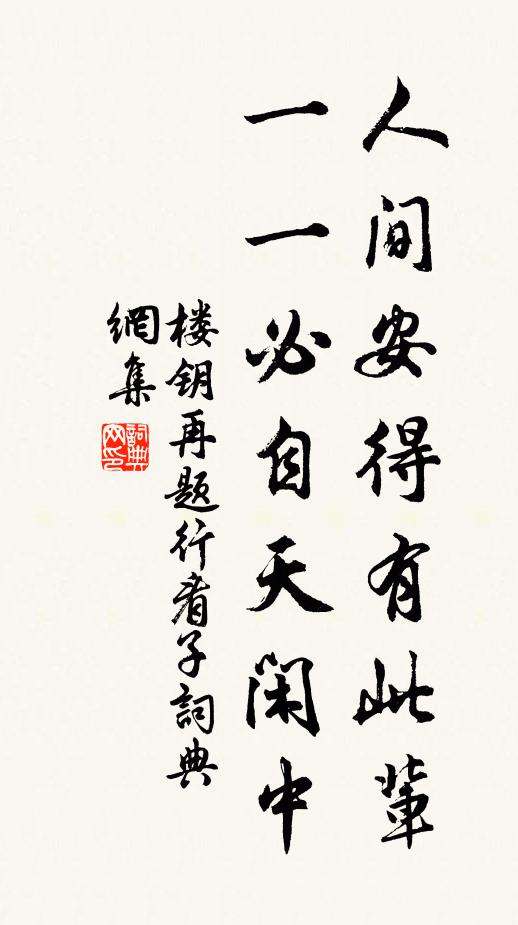 人间安得有此輩
一一必自天闲中
楼钥再题行看子詞典
網集
詞典網印